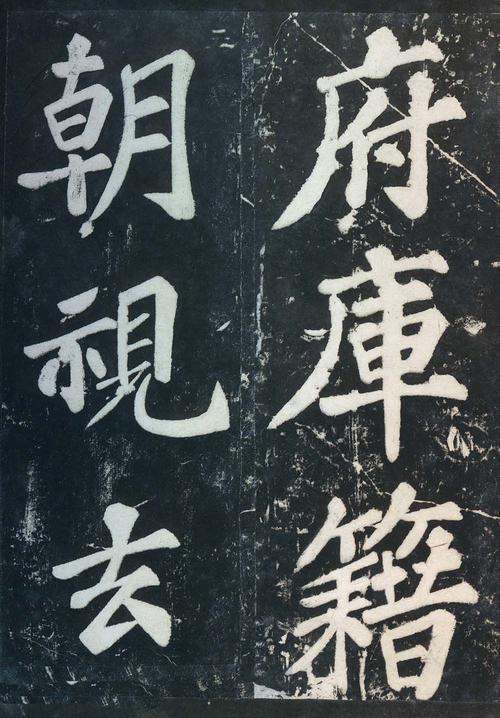 府庫籍
朝視去